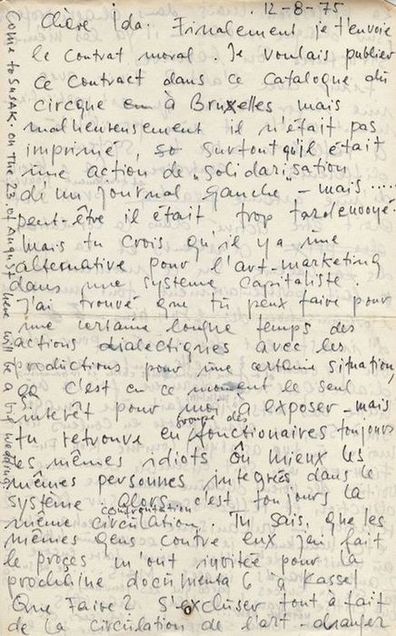 12-8-75
Chère Ida. Finalement je t'envoie
le contrat moral. Je voulais publier
ce contract dans ce catalogue du
circque à Bruxelles mais
malheureusement il n'était pas
imprimé, so surtout qu'il était
une action de "solidarisation
d'un journal gauche - mais.....
peut-être il était trop tard envoyé.
Mais tu crois qu'il y a une
alternative pour l'art-marketing
dans une système capitaliste.
J'ai trouvé que tu peux faire pour
une certaine longue temps des
actions dialectiques avec les
productions pour une certaine situation,
ça c'est en ce moment le seul
intérêt pour moi à exposer - mais
groupe des
tu retrouve en fonctionaires toujours
les mêmes idiots ou mieux les
mêmes personnes integrés dans le
système. Alors c'est toujours la
confrontation
même circulation. Tu sais, que les
mêmes gens contre eux j'ai fait
le procès m'ont invitée pour la
prochaine documenta 6 à Kassel
Que faire? S'excluser tout à fait
de la circulation de l'art - changer
Come to SUSAK on the 23 of August here will be a big wedding